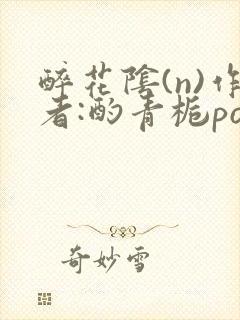 醉花陰(n)作
者:酌青栀po
奇妙雪